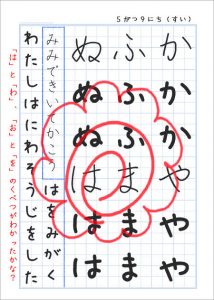 5がつ9にち(すい)
かかかややや
ふふふままま
ぬぬぬははは
みみできいてかこう
はをみがく
わたしはにわそうじをした
「は」と「わ」、「お」と「を」のくべつがわかったかな?